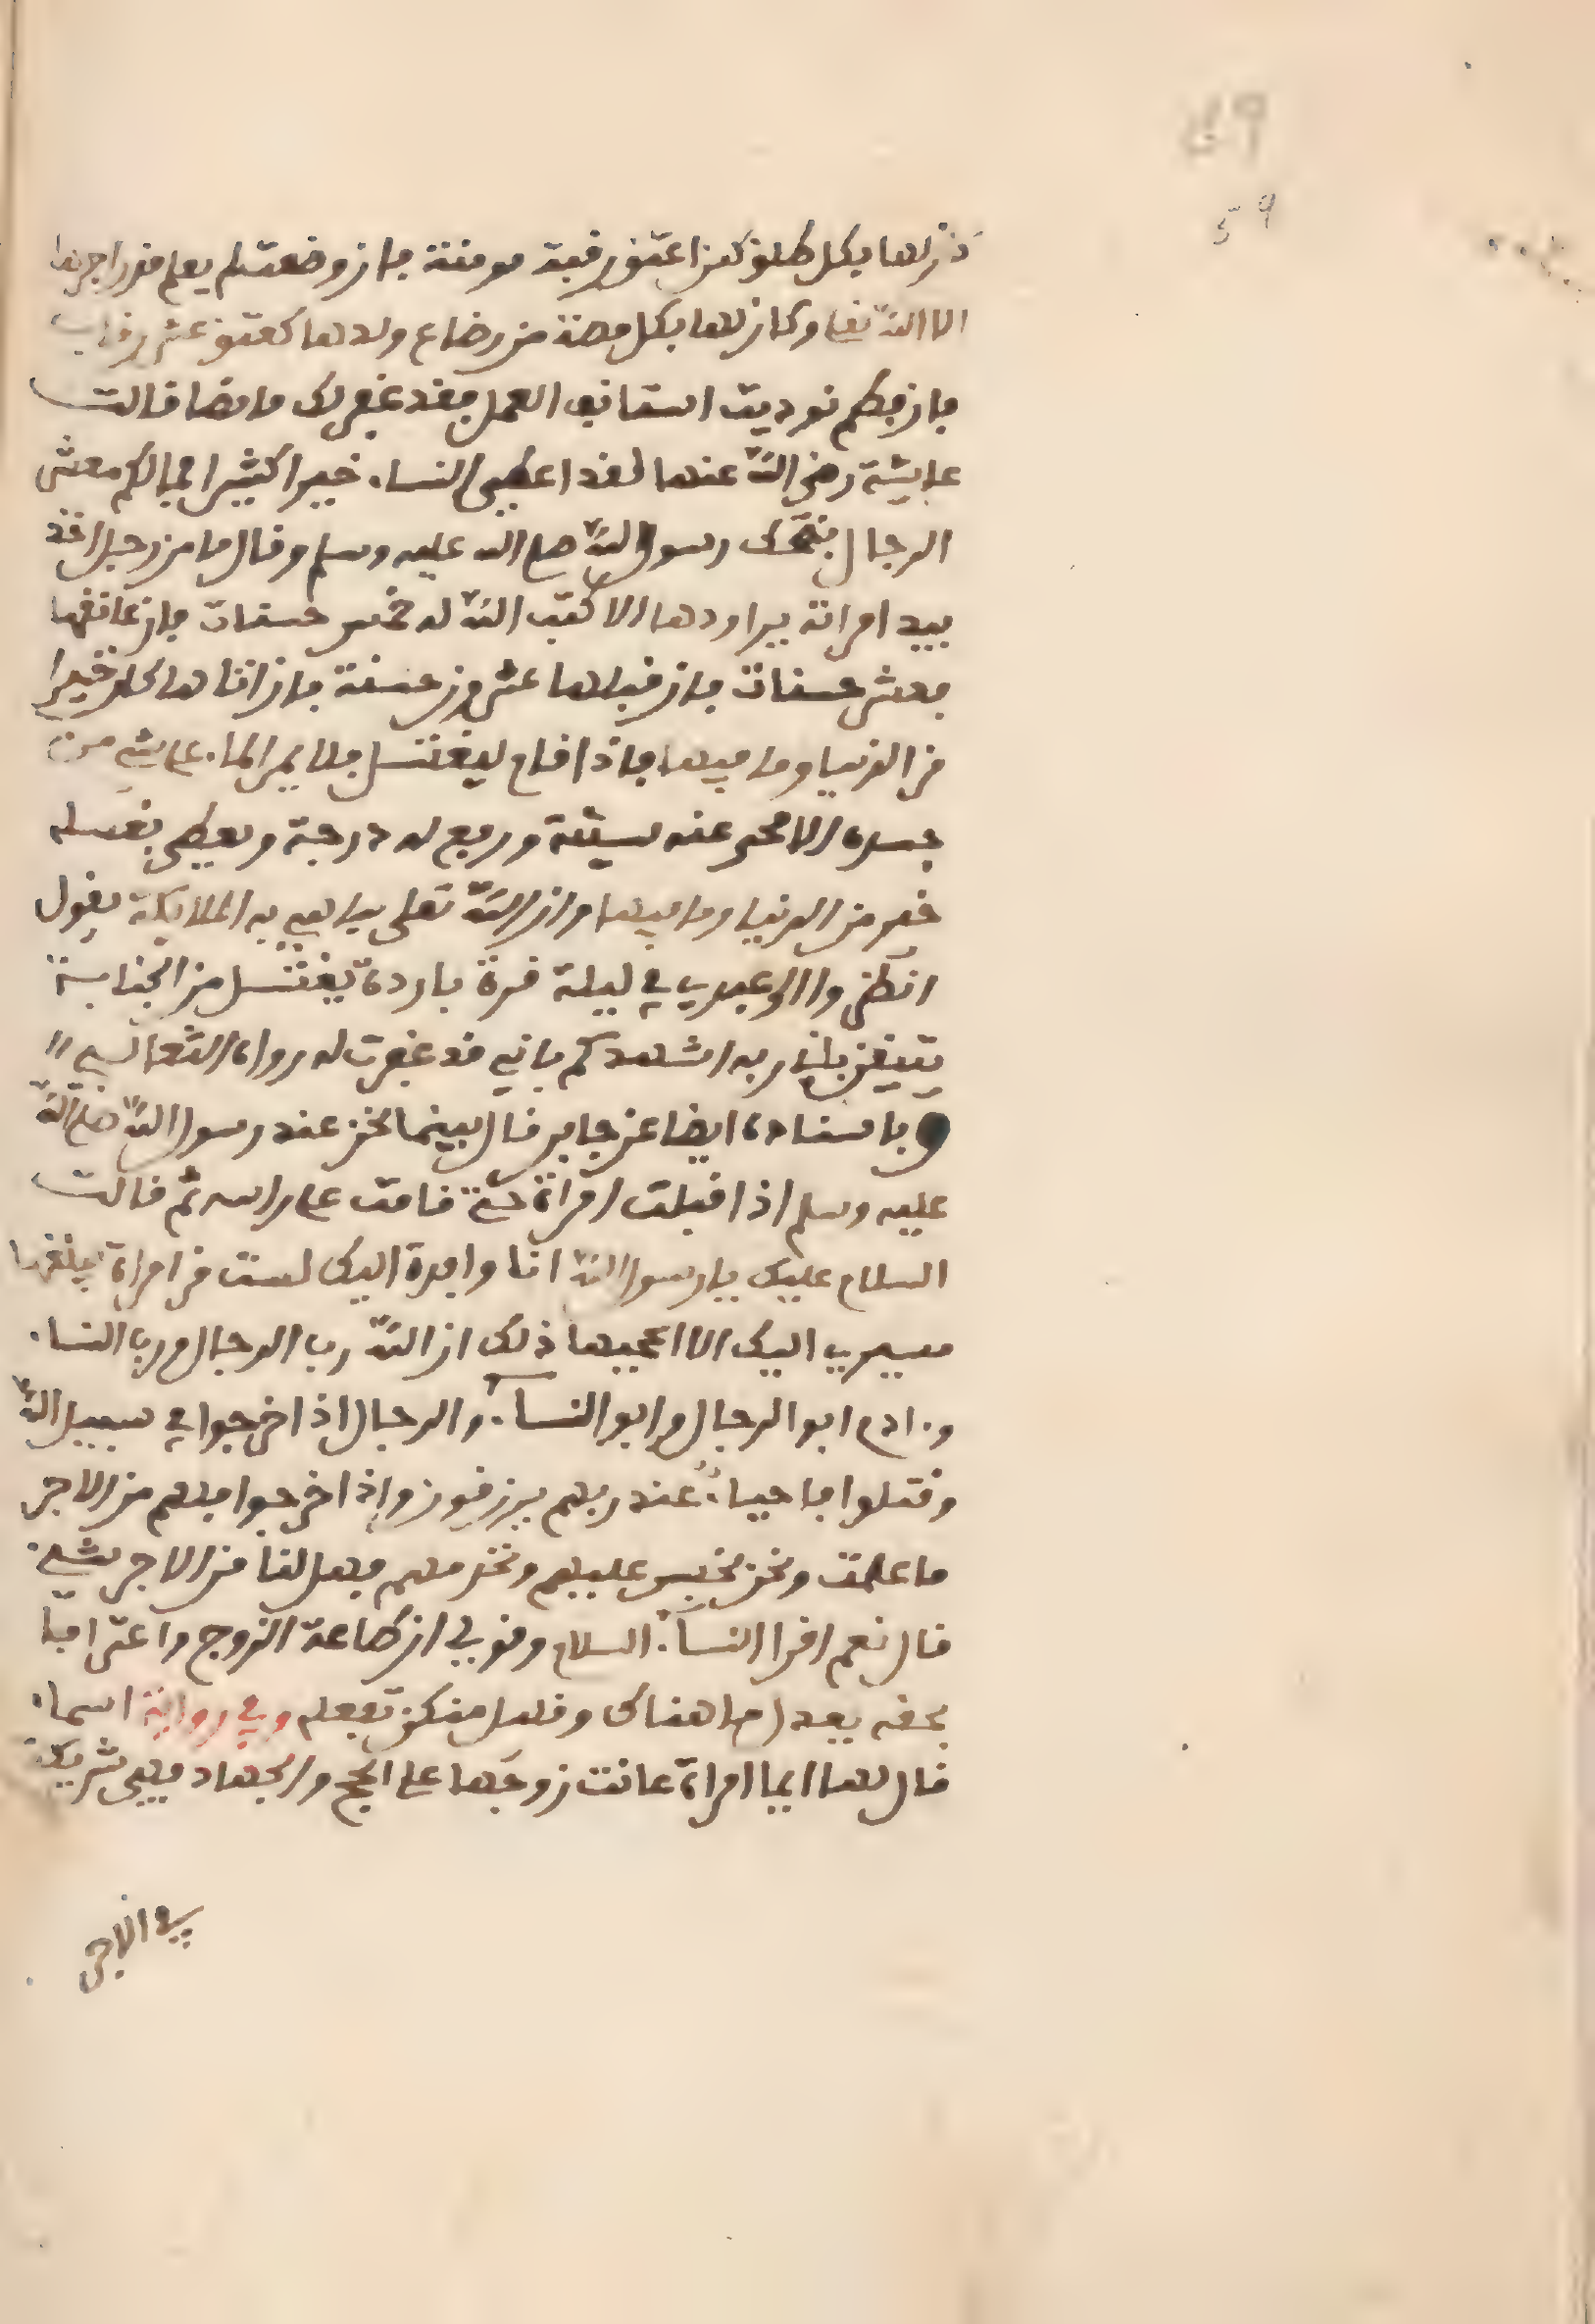 59
كان لها بكل طلق كمن اعتق رقبة مومنة فان وضعت لم يعلم قدر اجرها
الا الله تعا وكان لها بكل مصة من رضاع ولدها كعتق عشر رقاب
فان فطم نوديت استانف العمل فقد غفر لك ما مضا فالت
عايشة رضي الله عنها لقد اعطي النساء خيرا كثيرا فمالكم معشر
الرجال فضحك رسول الله صلى الله عليه وسلم وقال ما من رجل اخذ
بيد امراته يراودها الا كتب الله له خمس حسنات فان عانقها
فعشر حسنات فان قبلها عشرون حسنة فان اتاها كان خيرا
من الدنيا وما فيها فاذا قام ليغتسل فلا يمر الماء على شيء من
جسده الا محى عنه سيئة ورفع له درجة ويعطى بغسله
خير من الدنيا وما فيها وان الله تعلى يباهي به الملايكة يقول
انظروا الى عبدي في ليلة قرة باردة يغتسل من الجنابة
يتيقن باني ربه اشهدكم باني قد غفرت له رواه الثعالبي
وباسناده ايضا عن جابر قال بينما نحن عند رسول الله صلى الله
عليه وسلم اذ اقبلت امراة حتى قامت على راسه ثم قالت
السلام عليك يا رسول الله انا وافدة اليك لست من امراة يبلغها
مسيري اليك الا اعجبها ذلك ان الله رب الرجال ورب النساء
وءادم ابو الرجال وابو النساء والرجال اذا خرجوا في سبيل الله
وقتلوا فاحياء عند ربهم يرزقون واذا خرجوا فلهم من الاجر
ما علمت ونحن نحبس عليهم ونخدمهم فهل لنا من الاجر شيء
قال نعم اقرا النساء السلام وقولي ان طاعة الزوج واعترافا
بحقه يعدل ما هناك وقليل منكن تفعله وفي رواية اسماء
قال لها ايما امراة عانت زوجها على الحج والجهاد فهي شريكة
في الاجر